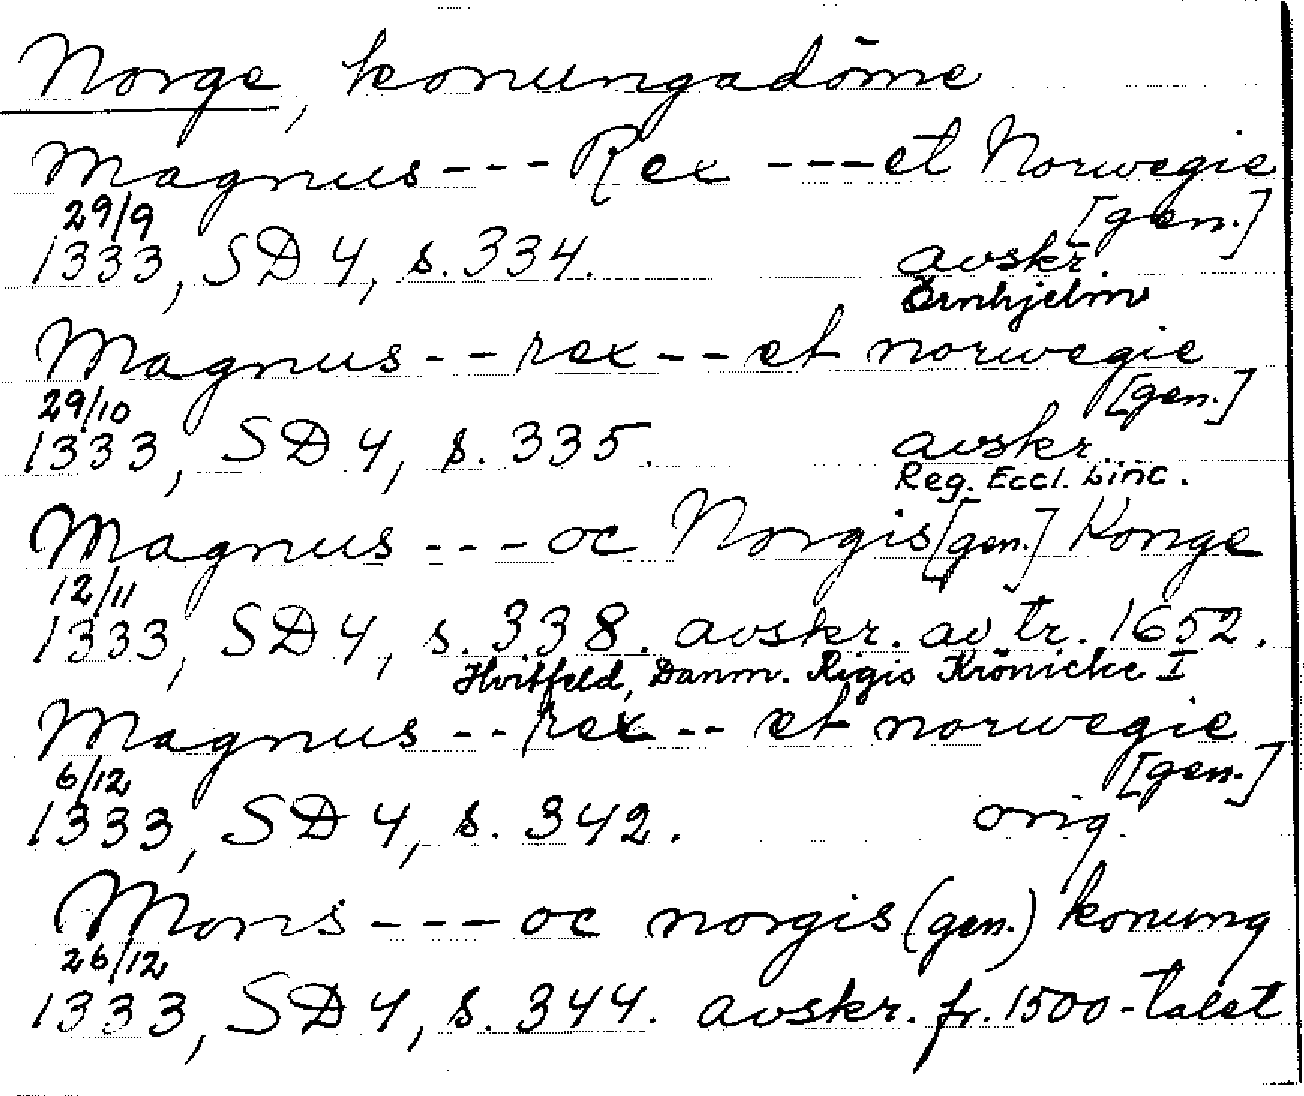 Norge, konungadöme
Magnus --- Rex --- et Norwegie
[gen.]
29/9
1333, SD 4, s. 334. avskr.
Örnhjelm
Magnus -- rex -- et norwegie
[gen.]
29/10
1333, SD 4, s. 335. avskr.
Reg. Eccl. Linc.
Magnus --- oc Norgis [gen.] Konge
12/11
1333, SD 4, s. 338. avskr. av tr. 1652.
Hvitfeld, Danm. Rigis Krönicke I
Magnus -- rex -- et norwegie
[gen.]
6/12
1333, SD 4, s. 342. orig.
Mons --- oc norgis (gen.) konung
26/12
1333, SD 4, s. 344. avskr. fr. 1500-talet